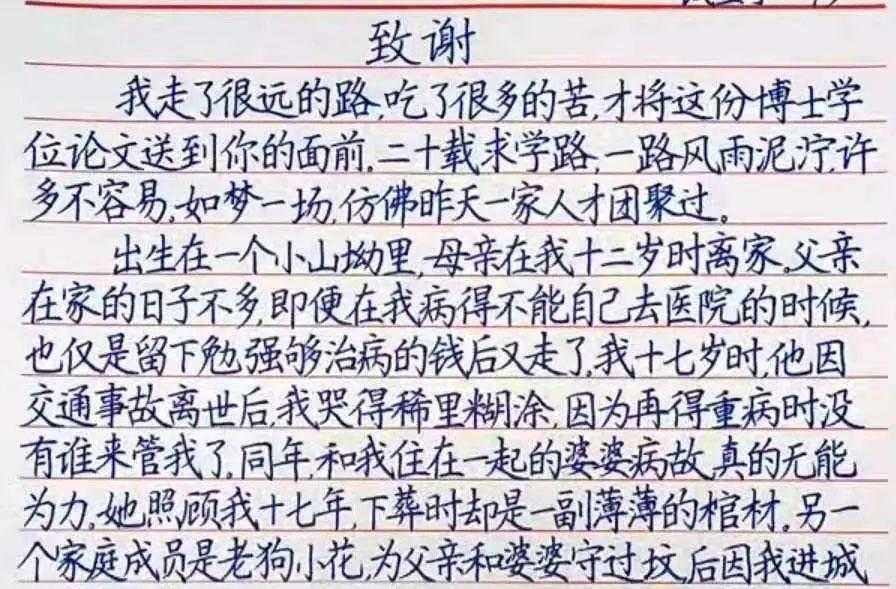 致谢
我走了很远的路,吃了很多的苦,才将这份博士学
位论文送到你的面前。二十载求学路,一路风雨泥泞,许
多不容易。如梦一场,仿佛昨天一家人才团聚过。
出生在一个小山坳里,母亲在我十二岁时离家。父亲
在家的日子不多,即便在我病得不能自己去医院的时候,
也仅是留下勉强够治病的钱后又走了。我十七岁时,他因
交通事故离世后,我哭得稀里糊涂,因为再得重病时没
有谁来管我了。同年,和我住在一起的婆婆病故,真的无能
为力。她照顾我十七年,下葬时却是一副薄薄的棺材。另一
个家庭成员是老狗小花,为父亲和婆婆守过坟,后因我进城